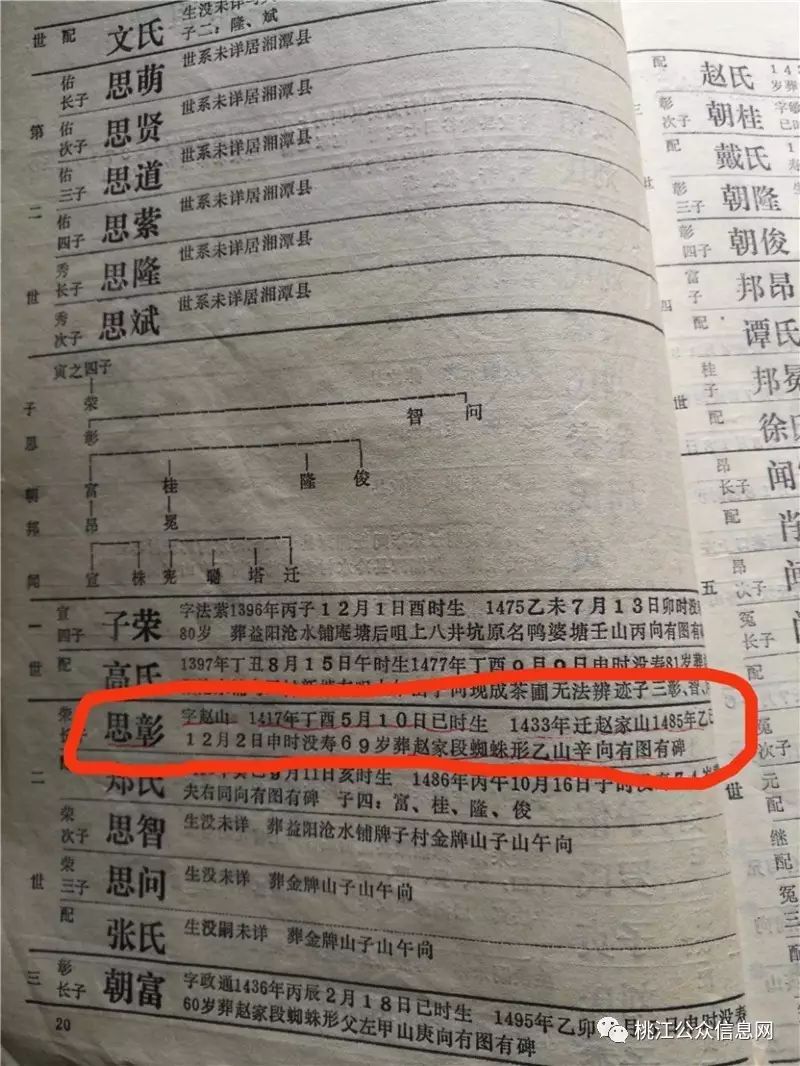 世 配 文氏 生没未详
子二：隆、斌
佑长子 思萌 世系未详居湘潭县
第 佑次子 思贤 世系未详居湘潭县
佑三子 思道 世系未详居湘潭县
二 佑四子 思萦 世系未详居湘潭县
秀长子 思隆 世系未详居湘潭县
世 秀次子 思斌 世系未详居湘潭县
寅之四子
子 荣
智 问
思 彰
朝 富 桂 隆 俊
邦 昂 冕
闻 宣 株 宪 瑚 塔 迁
一 宣四子 子荣 字法紫1396年丙子12月1日酉时生 1475乙未7月13日卯时没
80岁 葬益阳沧水铺庵塘后咀上八井坑原名鸭婆塘壬山丙向有图有碑
世 配 高氏 1397年丁丑8月15日午时生1477年丁酉9月9日申时没寿81岁葬
向现成茶圃无法辨迹子三彰、智、
荣长子 思彰 字赵山 1417年丁酉5月10日巳时生 1433年迁赵家山1485年乙巳
12月2日申时没寿69岁葬赵家段蜘蛛形乙山辛向有图有碑
二 郑氏 年癸巳9月11日亥时生 1486年丙午10月16日子时没寿74岁
夫右同向有图有碑 子四：富、桂、隆、俊
荣次子 思智 生没未详 葬益阳沧水铺牌子村金牌山子山午向
世 荣三子 思问 生没未详 葬金牌山子山午向
配 张氏 生没嗣未详 葬金牌山子山午向
三 彰长子 朝富 字政通1436年丙辰2月18日已时生 1495年乙卯 月 日申时没寿
60岁葬赵家段蜘蛛形父左甲山庚向有图有碑
20
配 赵氏
三 彰次子 朝桂
配 戴氏
世 彰三子 朝隆
彰四子 朝俊
富子 邦昂
四 配 谭氏
桂子 邦冕
世 配 徐氏
昂长子 闻
配 肖
五 昂次子
冕长子
配
冕次子
世 元配
继配
冕三
配
桃江公众信息网